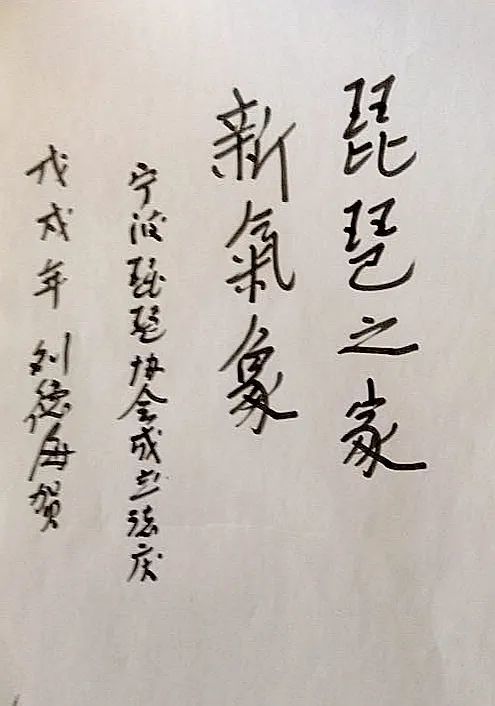 琵琶之家
新氣象
宁波琵琶协会成立志庆
戊戌年 刘德海贺